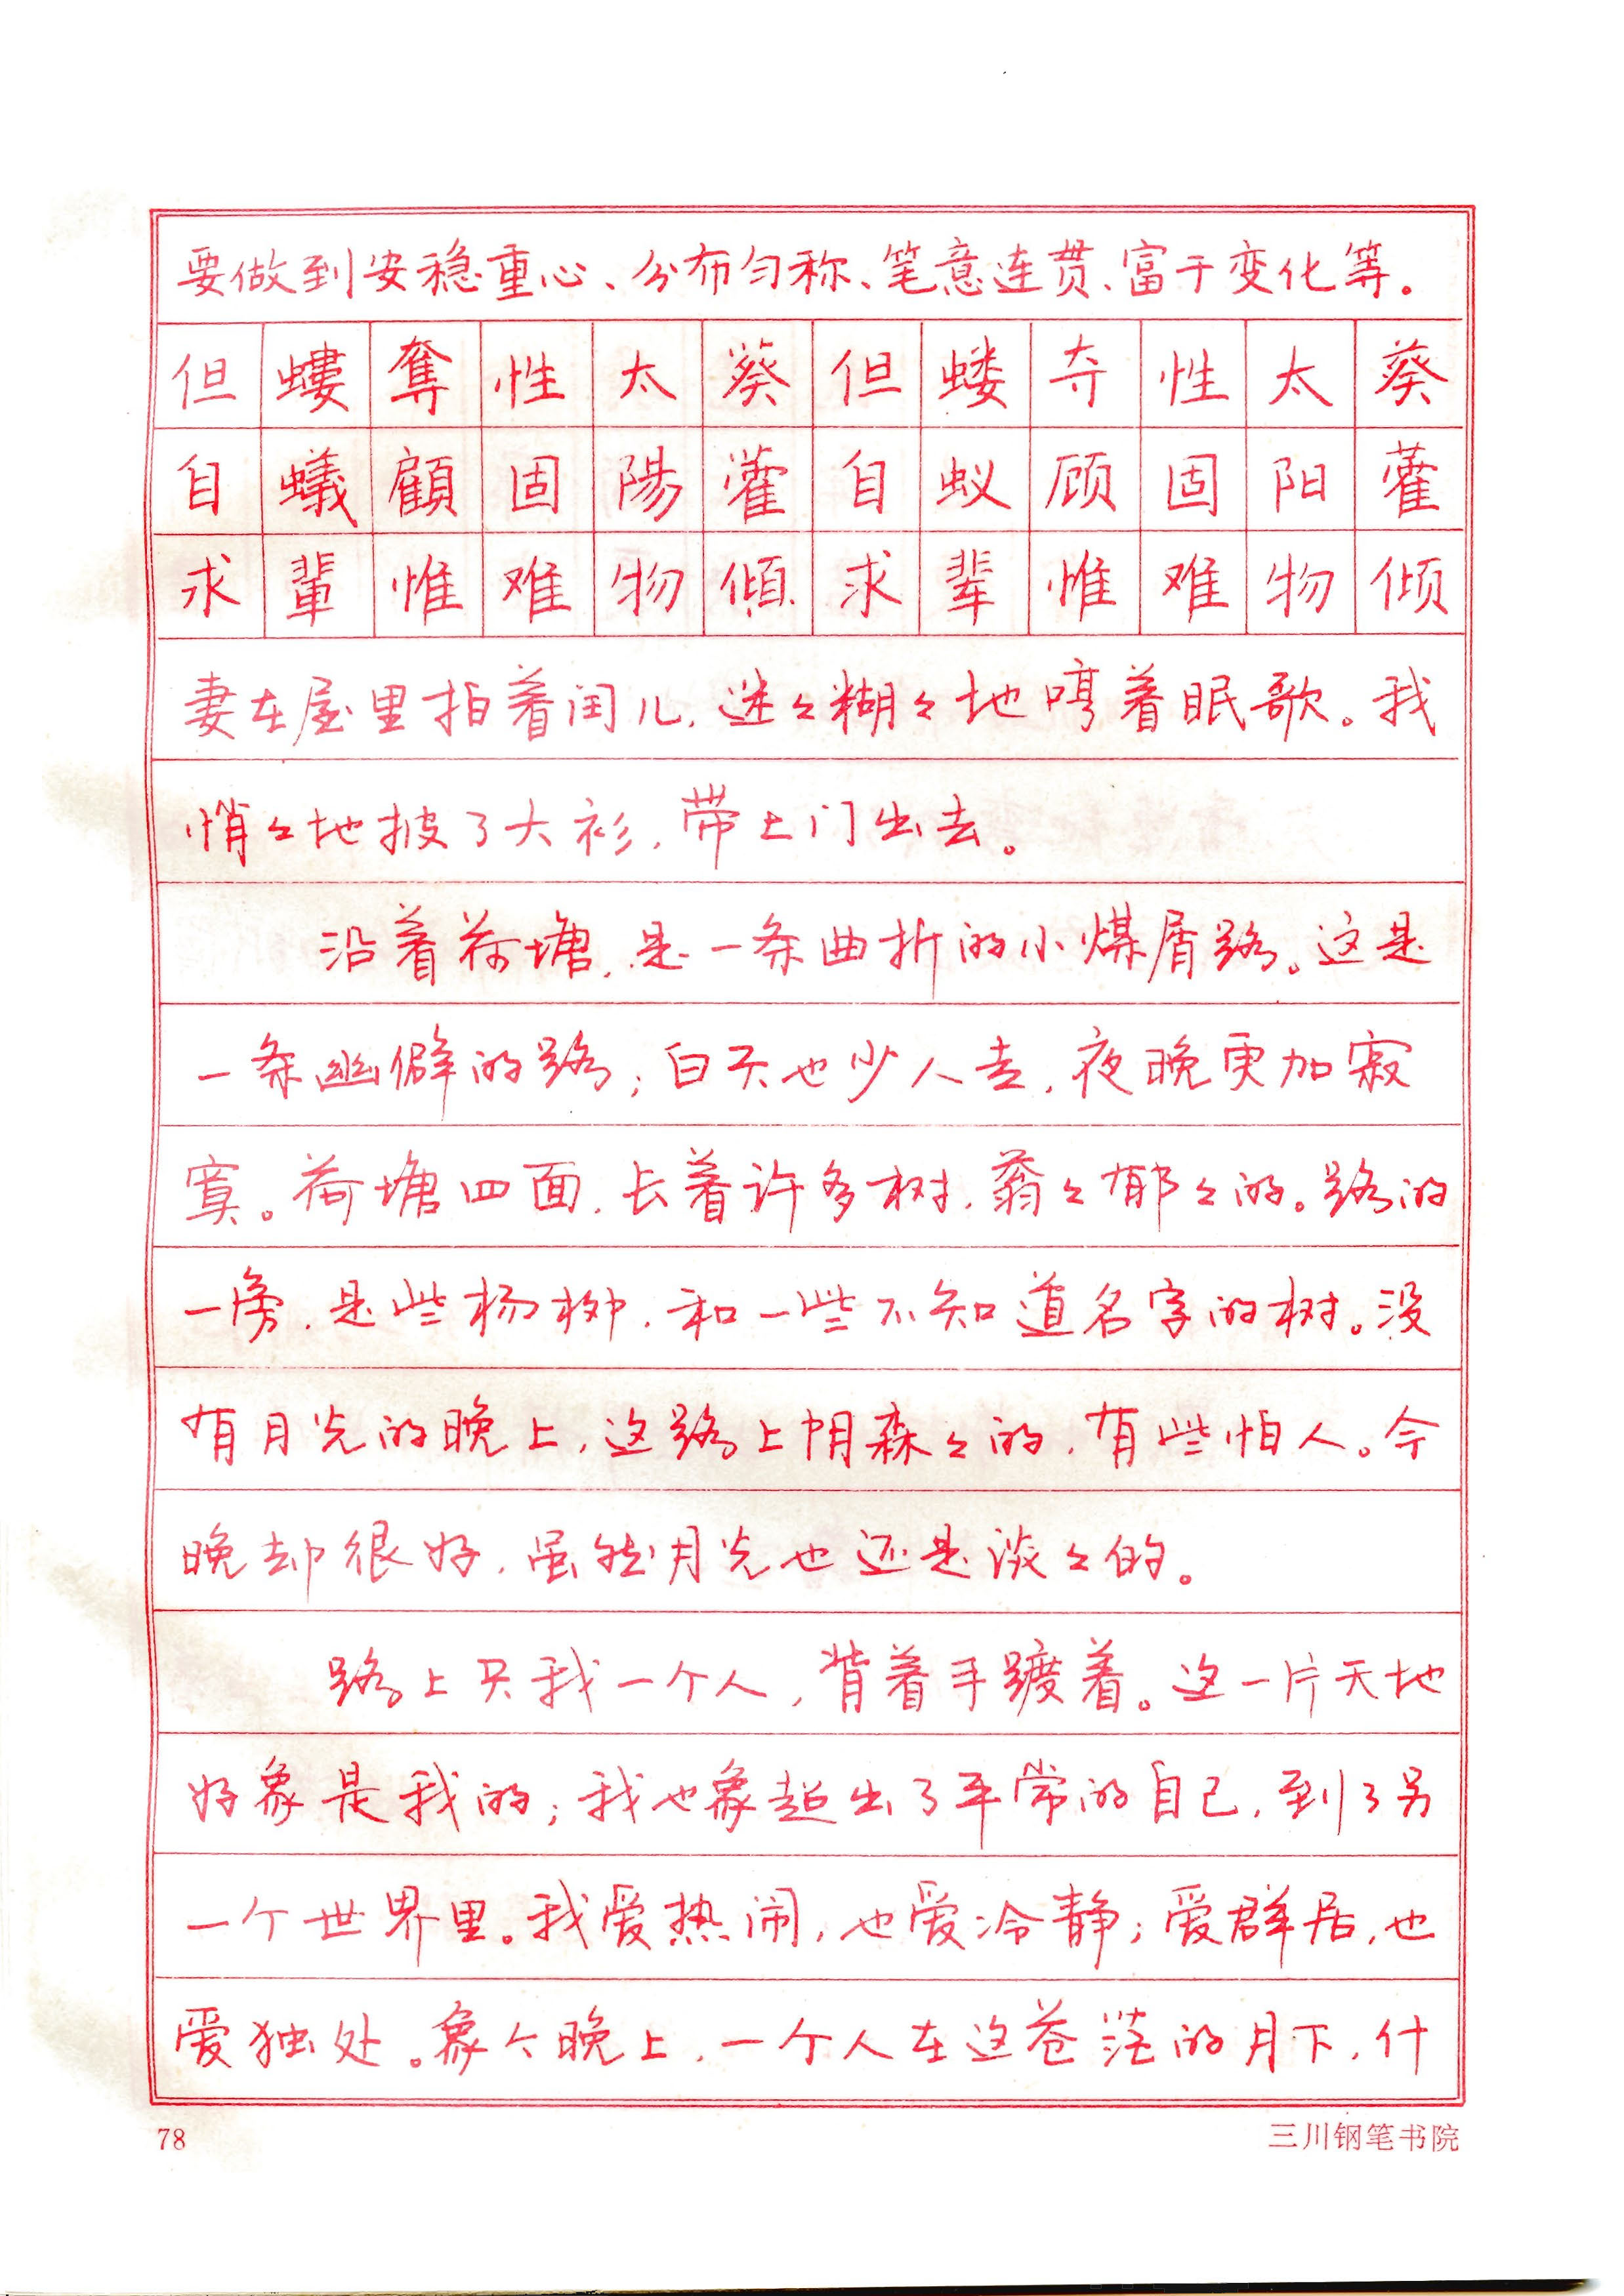 要做到安稳重心、分布匀称、笔意连贯、富于变化等。
但 螻 奪 性 太 葵 但 蝼 夺 性 太 葵
自 蟻 顧 固 陽 藿 自 蚁 顾 固 阳 藿
求 輩 惟 难 物 傾 求 辈 惟 难 物 倾
妻在屋里拍着闰儿,迷々糊々地哼着眠歌。我
悄々地披了大衫,带上门出去。
沿着荷塘,是一条曲折的小煤屑路。这是
一条幽僻的路;白天也少人走,夜晚更加寂
寞。荷塘四面,长着许多树,蓊々郁々的。路的
一旁,是些杨柳,和一些不知道名字的树。没
有月光的晚上,这路上阴森々的,有些怕人。今
晚却很好,虽然月光也还是淡々的。
路上只我一个人,背着手踱着。这一片天地
好象是我的;我也象超出了平常的自己,到了另
一个世界里。我爱热闹,也爱冷静;爱群居,也
爱独处。象今晚上,一个人在这苍茫的月下,什
78 三川钢笔书院